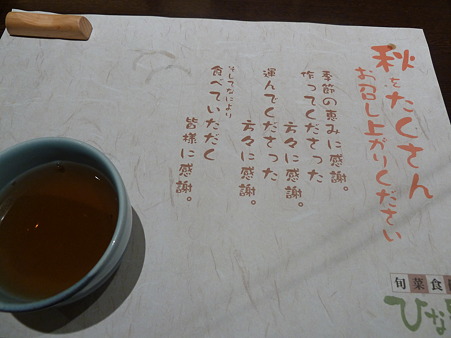 秋をたくさん
お召し上がりください
季節の恵みに感謝。
作ってくださった
方々に感謝。
運んでくださった
方々に感謝。
そしてなにより
食べていただく
皆様に感謝。
旬菜食
ひな